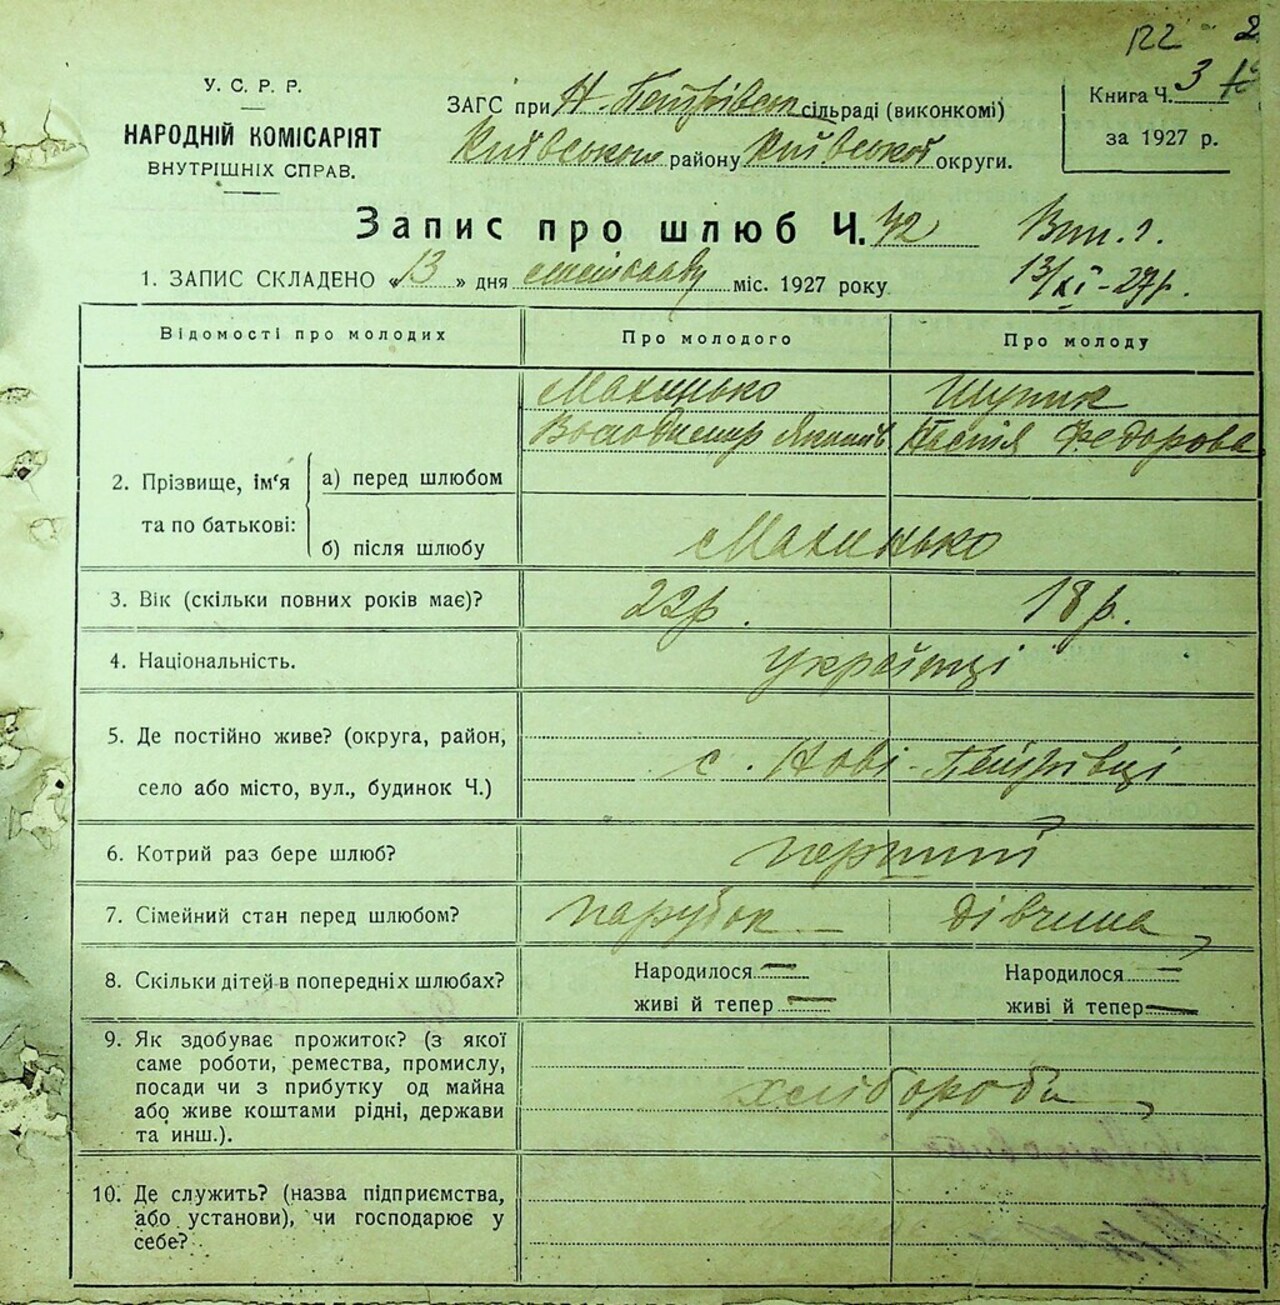 122 2
У. С. Р. Р.
НАРОДНІЙ КОМІСАРІЯТ
ВНУТРІШНІХ СПРАВ.
ЗАГС при Н. Петрівськ сільраді (виконкомі)
Київського району Київської округи.
Книга Ч. 3
за 1927 р.
Запис про шлюб Ч. 42
Вип. 1.
13/XI-27р.
1. ЗАПИС СКЛАДЕНО «13» дня листопаду міс. 1927 року
Відомості про молодих Про молодого Про молоду
2. Прізвище, ім'я та по батькові:
а) перед шлюбом
Махинько Шупик
Володимир Якимів Настія Федорова
б) після шлюбу
Махинько
3. Вік (скільки повних років має)? 22р. 18р.
4. Національність. українці
5. Де постійно живе? (округа, район,
село або місто, вул., будинок Ч.)
с. Нові-Петрівці
6. Котрий раз бере шлюб? перший
7. Сімейний стан перед шлюбом? парубок — дівчина
8. Скільки дітей в попередніх шлюбах? Народилося — Народилося —
живі й тепер — живі й тепер —
9. Як здобуває прожиток? (з якої
саме роботи, ремества, промислу,
посади чи з прибутку од майна
або живе коштами рідні, держави
та инш.).
хлібороби
10. Де служить? (назва підприємства,
або установи), чи господарює у
себе?